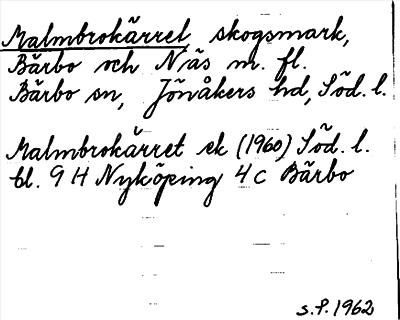 Malmbrokärret, skogsmark,
Bärbo och Näs m. fl.
Bärbo sn, Jönåkers hd, Söd. l.
Malmbrokärret ek (1960) Söd. l.
bl. 9 H Nyköping 4 c Bärbo
s.f. 1962